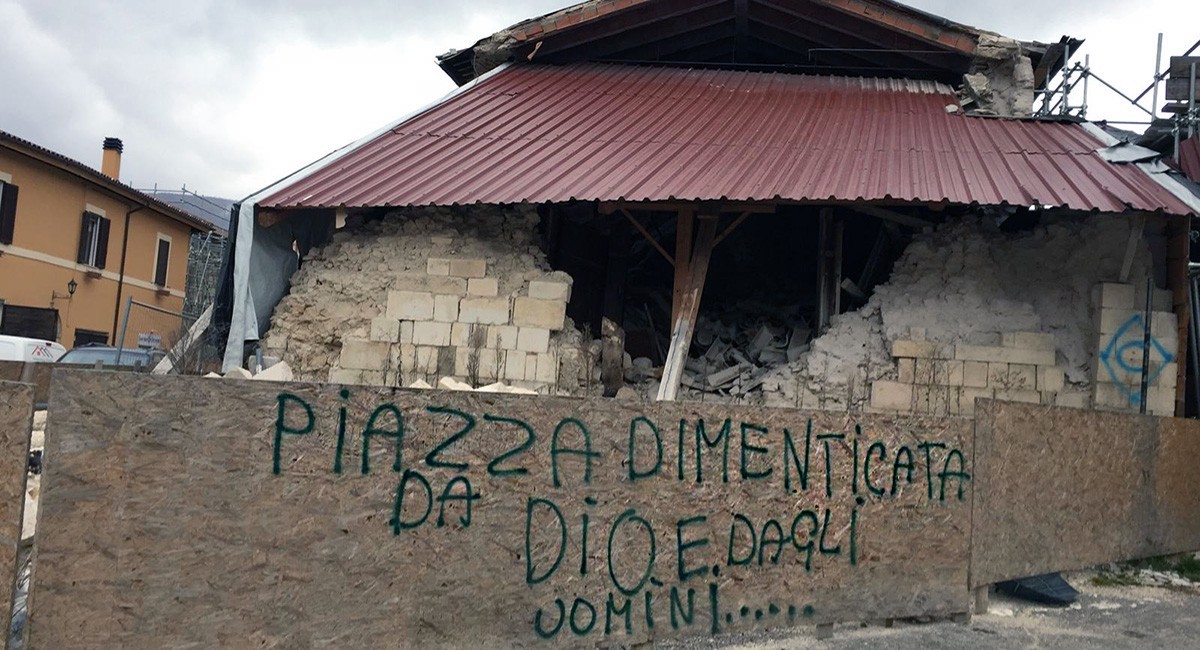 PiAZZA DIMENTiCATA
DA DiO E DAGLi
UOMiNi......